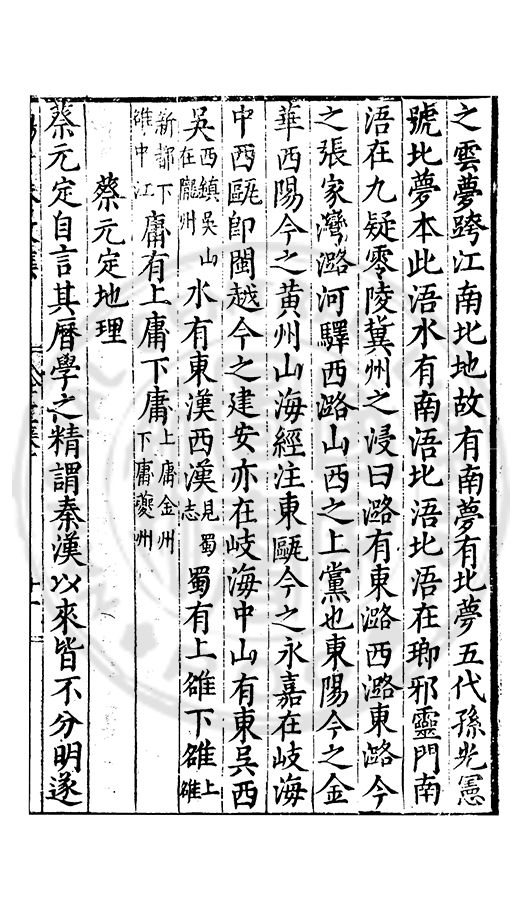 之雲夢跨江南北地故有南夢有北夢五代孫光憲
號北夢本此浯水有南浯北浯北浯在瑯邪靈門南
浯在九疑零陵冀州之浸曰潞有東潞西潞東潞今
之張家灣潞河驛西潞山西之上黨也東陽今之金
華西陽今之黄州山海經注東甌今之永嘉在岐海
中西甌卽閩越今之建安亦在岐海中山有東吳西
吳西鎮吳山在隴州水有東漢西漢見蜀志蜀有上雒下雒上雒
新都下雒中江庸有上庸下庸上庸金州下庸夔州
蔡元定地理
蔡元定自言其曆學之精謂秦漢以來皆不分明遂